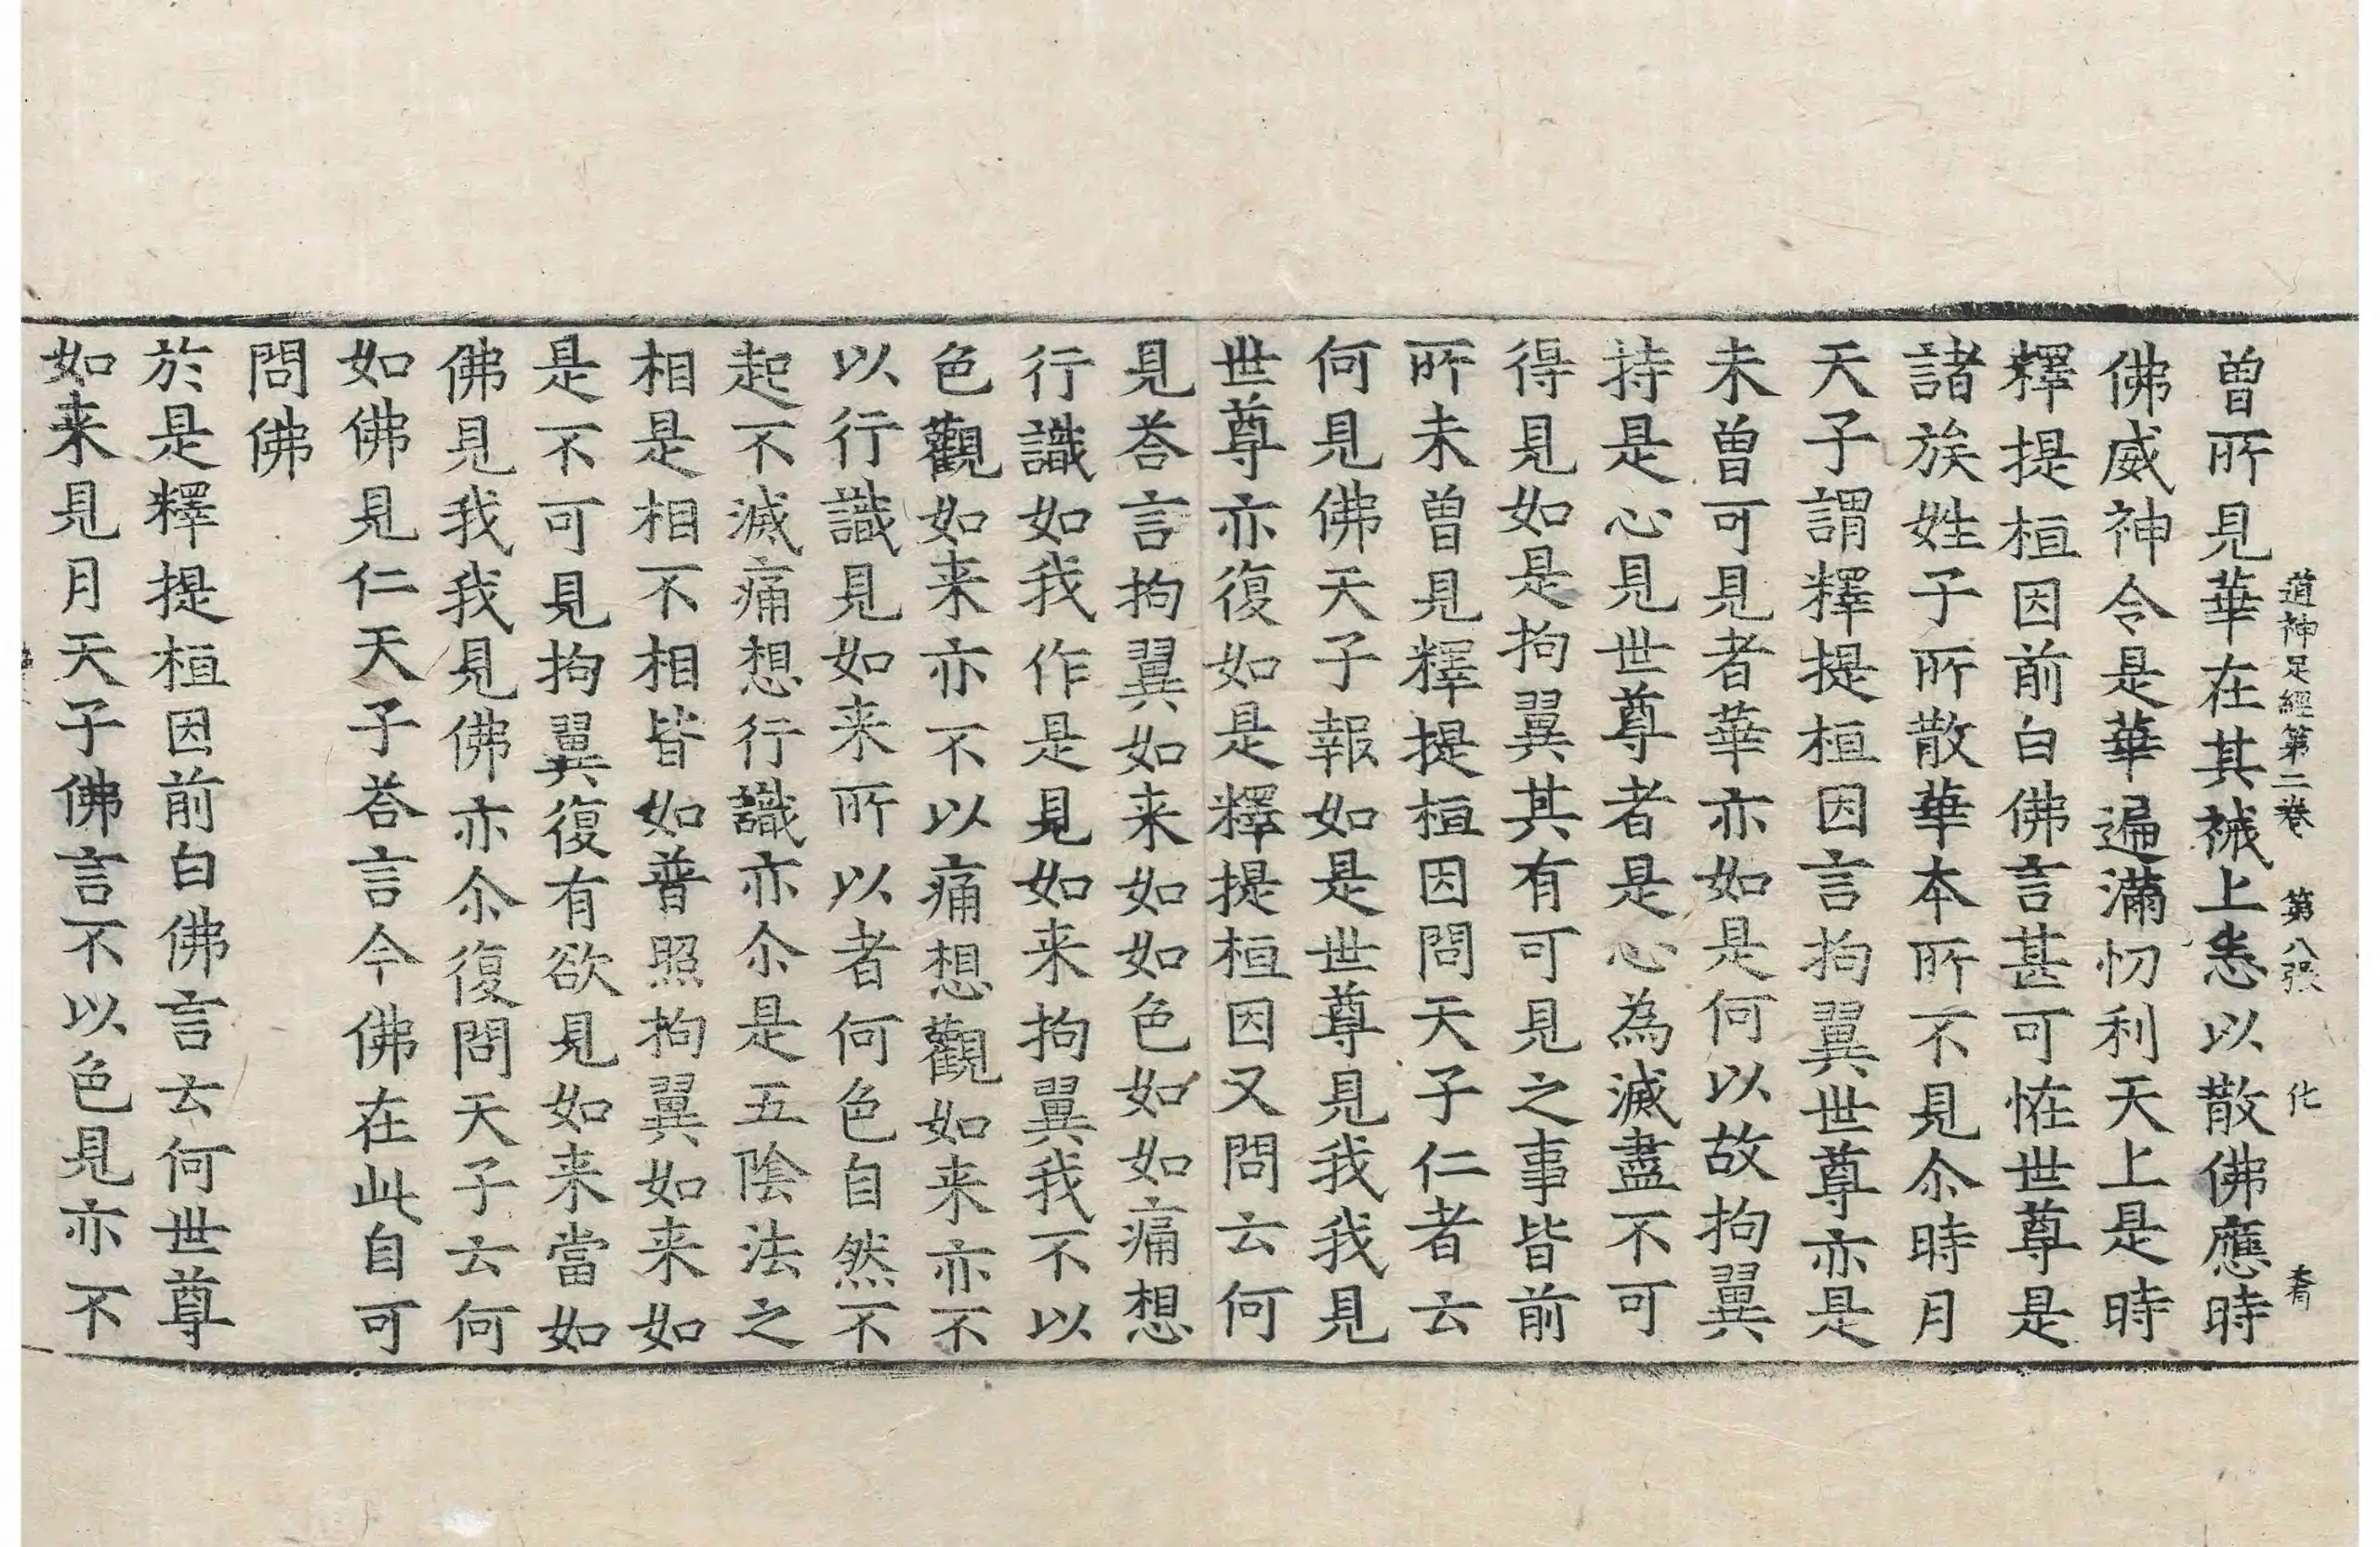 道神足經第二卷 第八張 化 
曾所見華在其裓上悉以散佛應時
佛威神令是華遍滿忉利天上是時
釋提桓因前白佛言甚可恠世尊是
諸族姓子所散華本所不見尒時月
天子謂釋提桓因言拘翼世尊亦是
未曾可見者華亦如是何以故拘翼
持是心見世尊者是心為滅盡不可
得見如是拘翼其有可見之事皆前
所未曾見釋提桓因問天子仁者云
何見佛天子報如是世尊見我我見
世尊亦復如是釋提桓因又問云何
見荅言拘翼如来如如色如如痛想
行識如我作是見如来拘翼我不以
色觀如来亦不以痛想觀如来亦不
以行識見如来所以者何色自然不
起不滅痛想行識亦尒是五陰法之
相是相不相皆如普照拘翼如来如
是不可見拘翼復有欲見如来當如
佛見我我見佛亦尒復問天子云何
如佛見仁天子荅言今佛在此自可
問佛
於是釋提桓因前白佛言云何世尊
如来見月天子佛言不以色見亦不